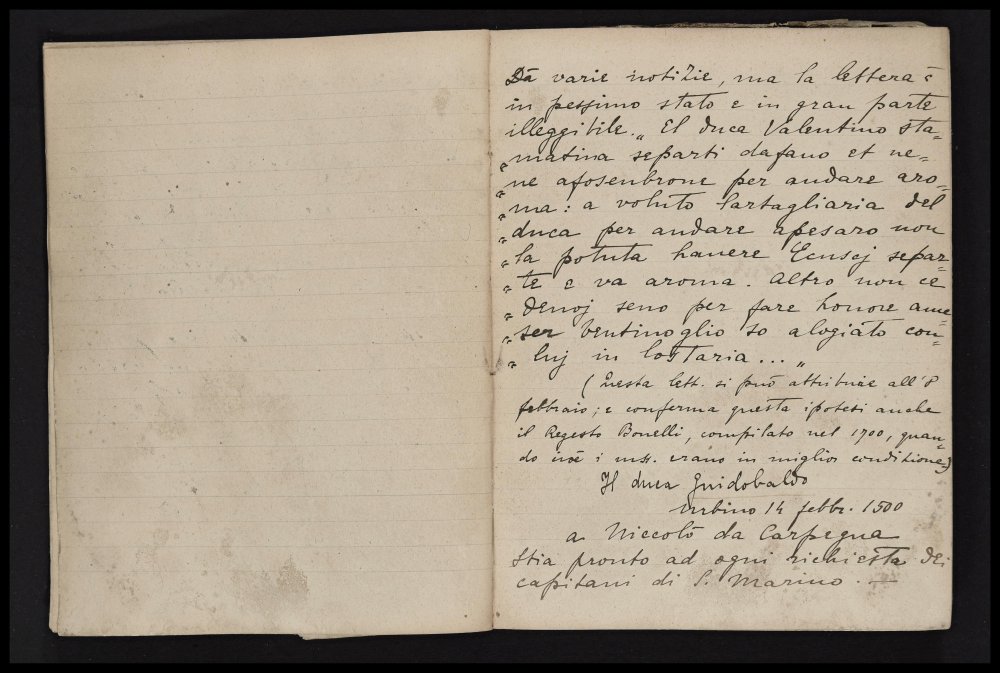 Dà varie notizie, ma la lettera è
in pessimo stato e in gran parte
illeggibile. „ El duca Valentino sta=
„ matina separti dafano et ve=
„ ne afosenbrone per andare aro=
„ ma: a voluto lartagliaria del
„ duca per andare apesaro non
„ la potuta havere Ecusej separ=
„ te e va aroma. Altro non ce
„ denoj seno per fare honore ame
„ ser bentinoglio so alogiato con=
„ luj in lostaria... „
(Questa lett. si può attribuire all' 8
febbraio; e conferma questa ipotesi anche
il Regesto Bonelli, compilato nel 1700, quan=
do cioè i mss. erano in miglior condizione)
Il duca Guidobaldo
Urbino 14 febbr. 1500
a Niccolò da Carpegna
Stia pronto ad ogni richiesta dei
capitani di S. Marino. —